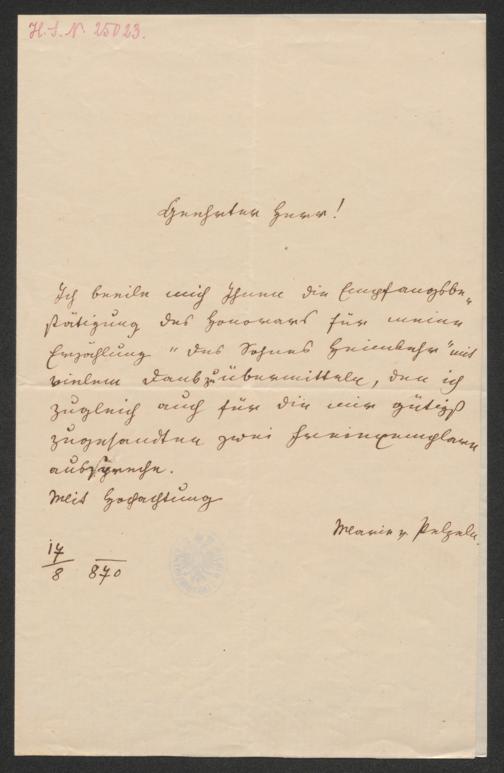 H. I. N. 25023.
Geehrter Herr!
Ich beeile mich Ihnen die Empfangsbe-
stätigung des Honorars für meine
Erzählung "des Sohnes Heimkehr" mit
vielem Dank zu übermitteln, den ich
zugleich auch für die mir gütigst
zugesandten zwei Freiexemplare
ausspreche.
Mit Hochachtung
Marie v Pelzeln.
17/8 870